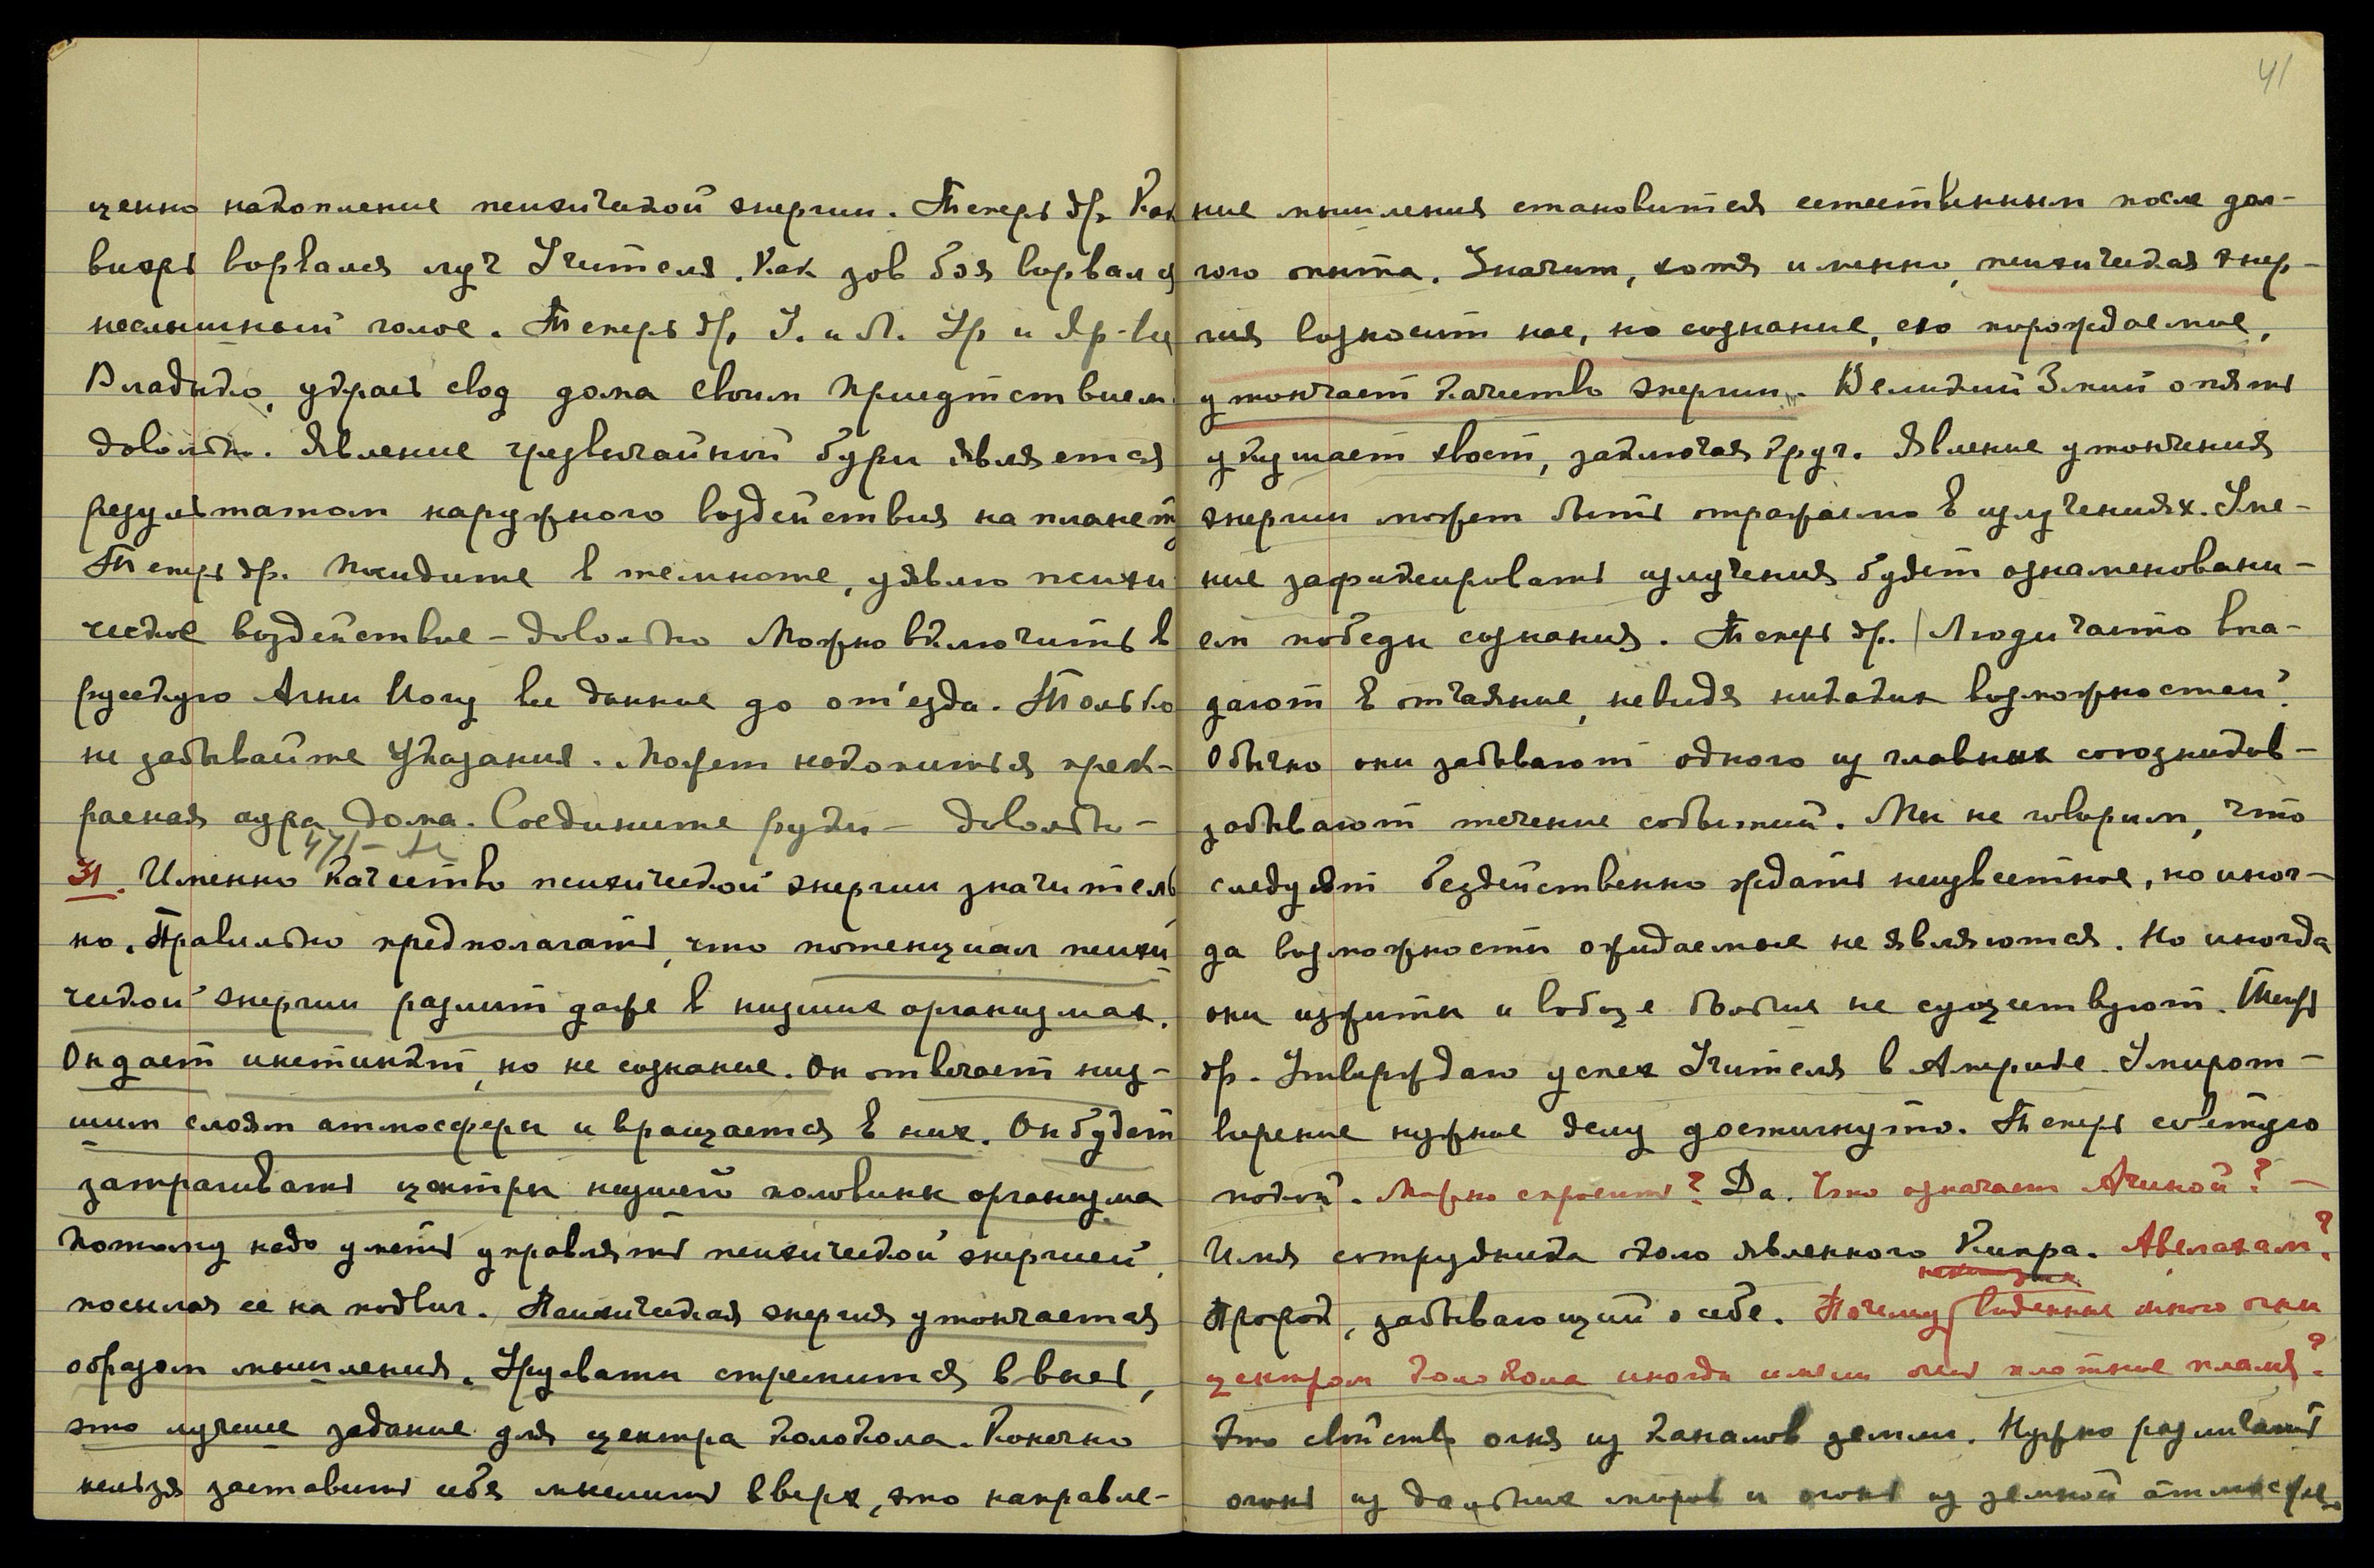 ценно накопление психической энергии. Теперь др. Как
вихрь ворвался луч Учителя. Как зов боя ворвался
неслышный голос. Теперь др. У. и Л. Ур и Яр-
Владыко, украсъ свод дома своим присутствием
довольно. Явление чрезвычайной бури является
результатом наружного воздействия на планету
Теперь др. Посидите в темноте, уявлю психи
ческое воздействие – довольно Можно включить в
русскую Агни Йогу все данные до от'езда. Только
не забывайте Указания. Может накопиться прек-
расная аура дома. Соедините руки – довольно –
471 –
31. Именно качество психической энергии значитель
но. Правильно предполагать, что потенциал психи
ческой энергии разлит даже в низших организмах.
Он дает инстинкт, но не сознание. Он отвечает низ-
шим слоям атмосферы и вращается в них. Он будет
затрагивать центры низшей половины организма
Потому надо уметь управлять психической энергией,
посылая ее на подвиг. Психическая энергия утончается
образом мышления. Урусвати стремится ввысь,
это лучшее задание для центра колокола. Конечно
нельзя заставить себя мыслить вверх, это направле-
41
ние мышления становится естественным после дол-
гого опыта. Значит, хотя именно, психическая энер-
гия возносит нас, но сознание, ею порождаемое,
утончает качество энергии. Великий Змий опять
укушает хвост, заключая круг. Явление утончения
энергии может быть отражено в излучениях. Уме-
ние зафиксировать излучения будет ознаменовани-
ем победы сознания. Теперь др. | Люди часто впа-
дают в отчаяние, не видя никаких возможностей.
Обычно они забывают одного из главных союзников –
забывают течение событий. Мы не говорим, что
следует бездейственно ждать неизвестное, но иног-
да возможности ожидаемые не являются. Но иногда
они изжиты и вообще больше не существуют. Теперь
др. Утверждаю успех Учителя в Америке. Умирот-
ворение нужное делу достигнуто. Теперь советую
покой. Можно спросить? Да. Что означает Агиной? –
Имя сотрудника коло явленного Кипра. Авелахам?
Пророк, забывающий о себе. Почему виденные мною огни
центром колокола иногда имели очень плотное пламя?
Это свойство огня из каналов земли. Нужно различать
огонь из дальних миров и огонь из земной атмосфе-